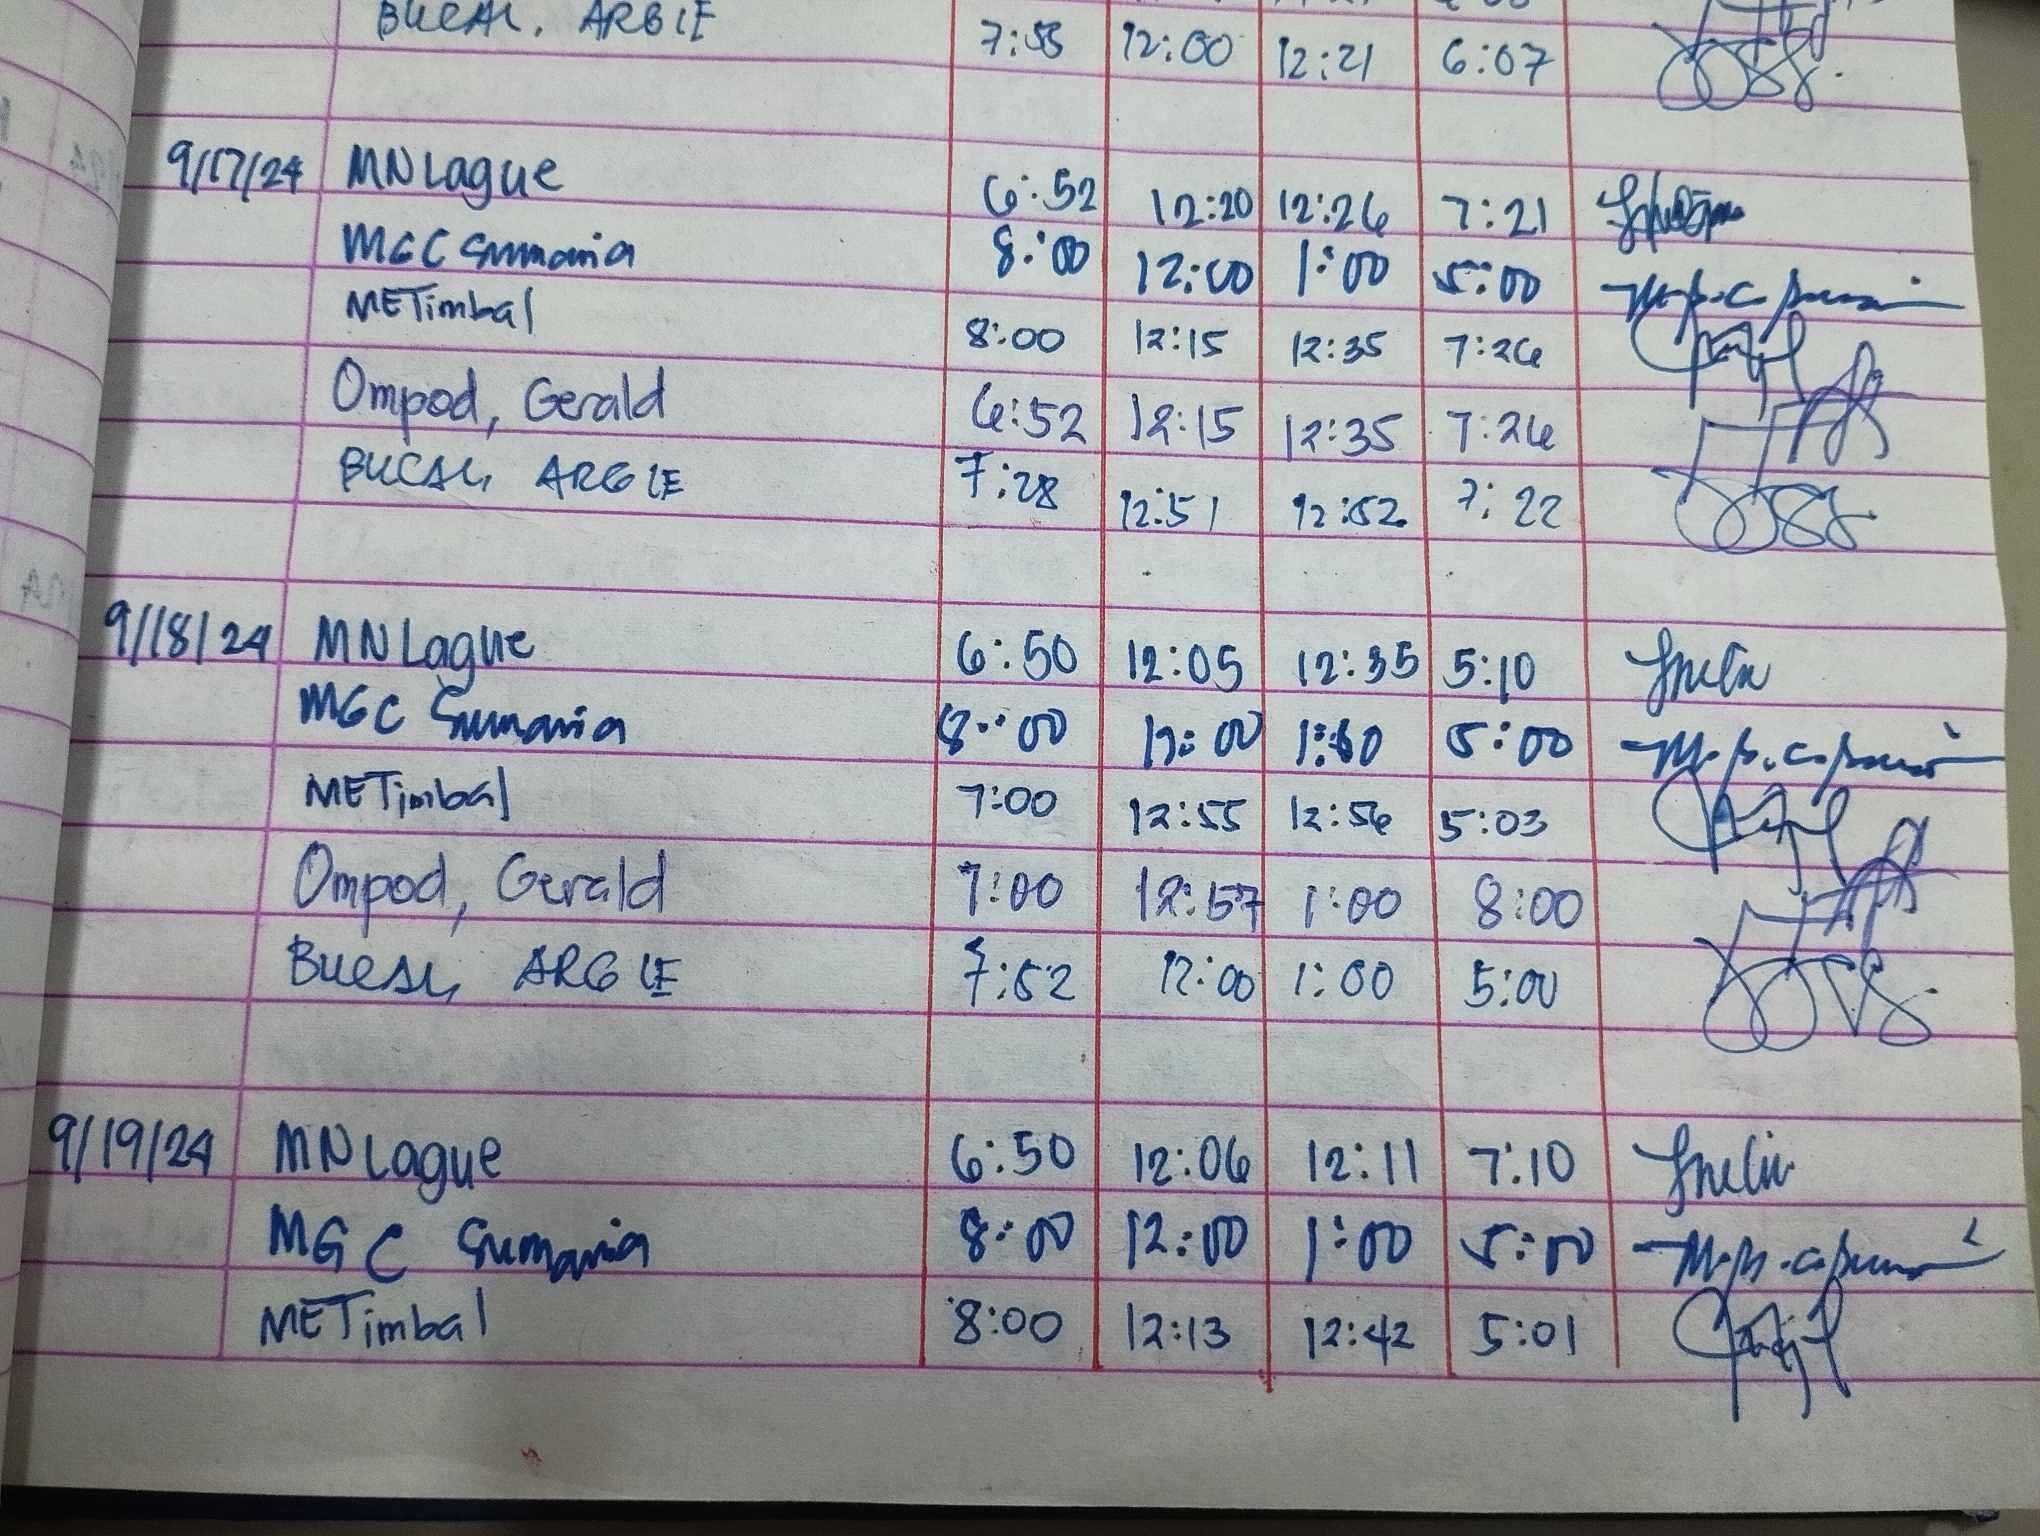 BUCAL, ARGIE 7:55 12:00 12:21 6:07
9/17/24 MNLague 6:52 12:20 12:26 7:21
MGC Sumania 8:00 12:00 1:00 5:00
METimbal 8:00 12:15 12:35 7:26
Ompod, Gerald 6:52 12:15 12:35 7:26
BUCAL, ARGIE 7:28 12:51 12:52 7:22
9/18/24 MNLague 6:50 12:05 12:35 5:10
MGC Sumania 8:00 12:00 1:00 5:00
METimbal 7:00 12:55 12:56 5:03
Ompod, Gerald 7:00 12:57 1:00 8:00
BUCAL, ARGIE 7:52 12:00 1:00 5:00
9/19/24 MNLague 6:50 12:06 12:11 7:10
MGC Sumania 8:00 12:00 1:00 5:00
METimbal 8:00 12:13 12:42 5:01